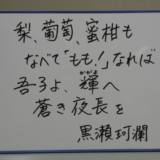 梨、葡萄、蜜柑も
なべて「もも!」なれば
吾子よ、輝へ
蒼き夜長を
黒瀬珂瀾